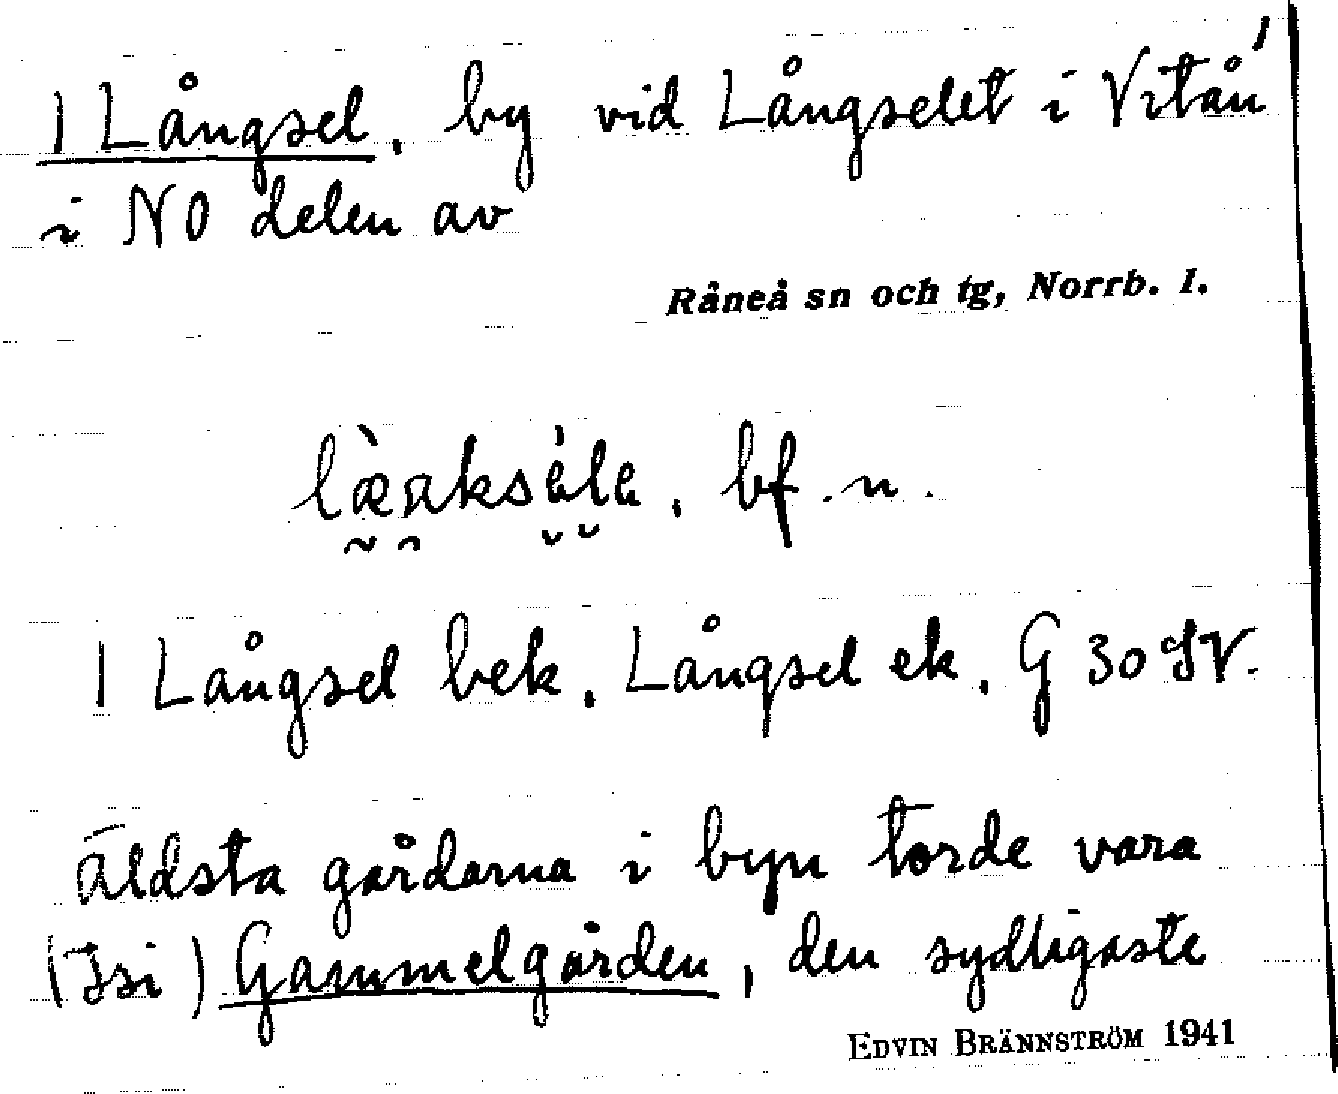 | Långsel, by vid Långselet i Vitån
i NO delen av
Råneå sn och tg, Norrb. l.
bf. n.
| Långsel bek. Långsel ek. G 30 SV.
äldsta gårdarna i byn torde vara
(Isi) Gammelgården, den sydligaste
EDVIN BRÄNNSTRÖM 1941